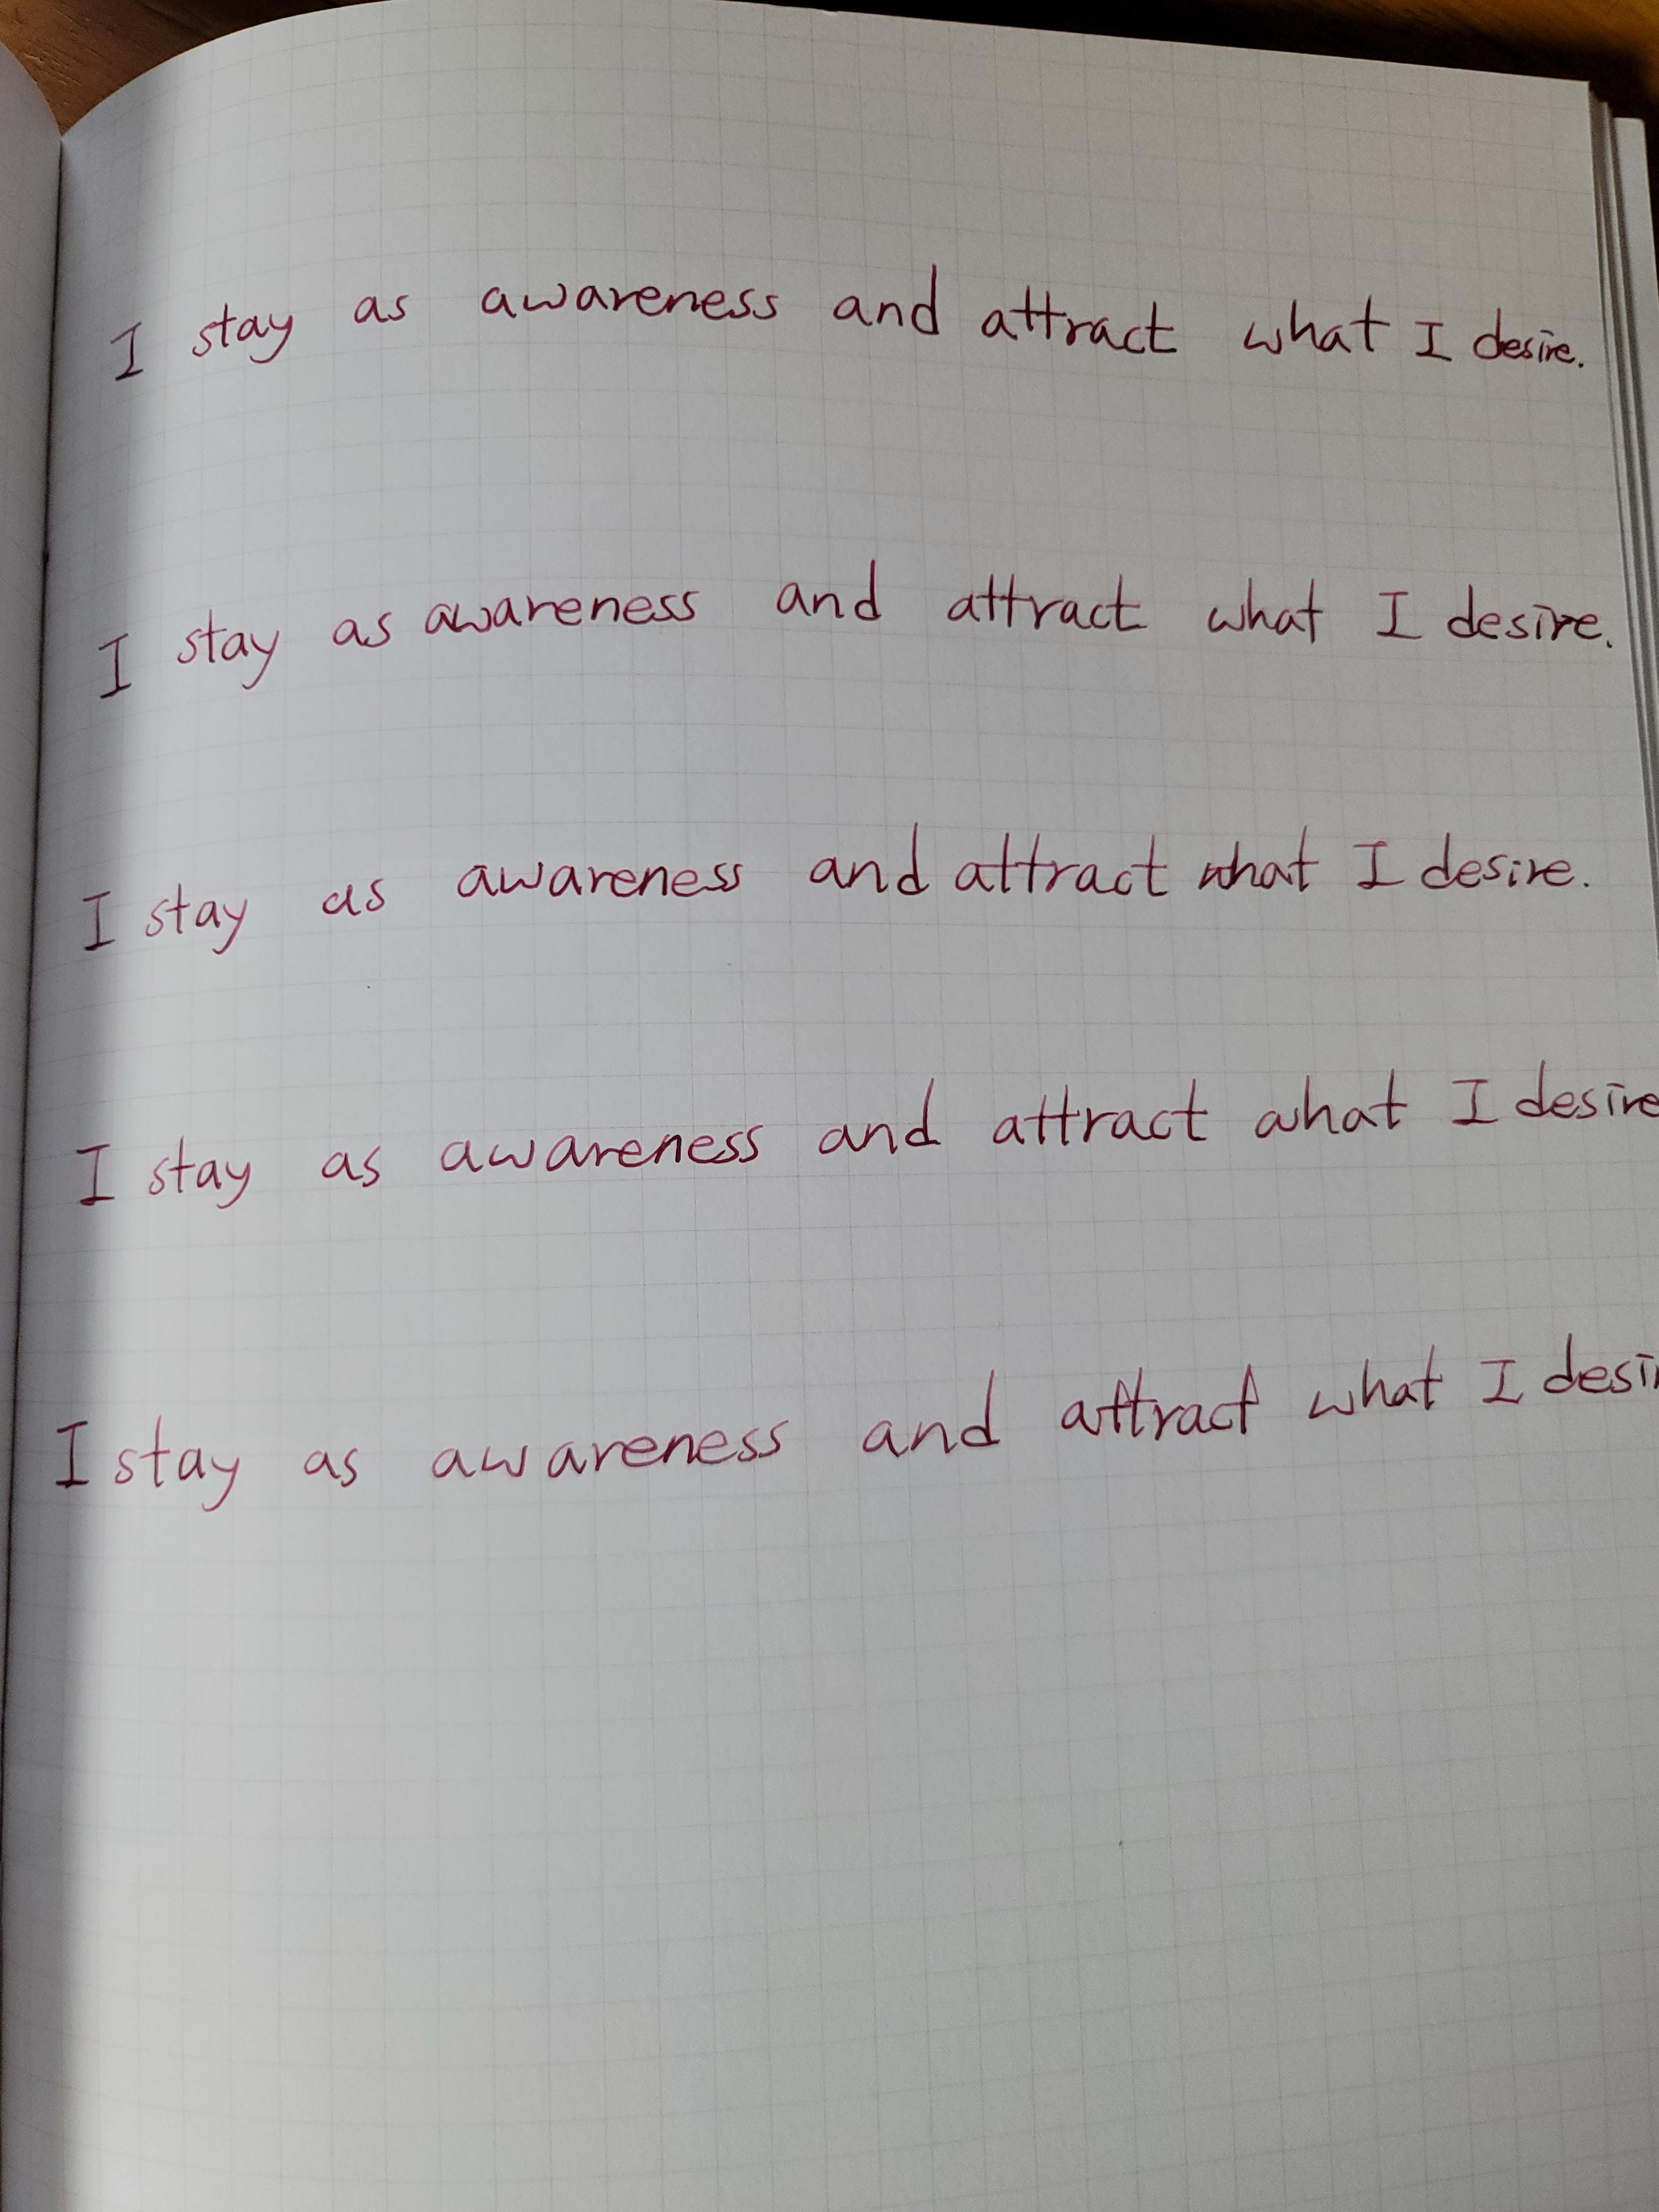 I stay as awareness and attract what I desire.
I stay as awareness and attract what I desire.
I stay as awareness and attract what I desire.
I stay as awareness and attract what I desire
I stay as awareness and attract what I desir